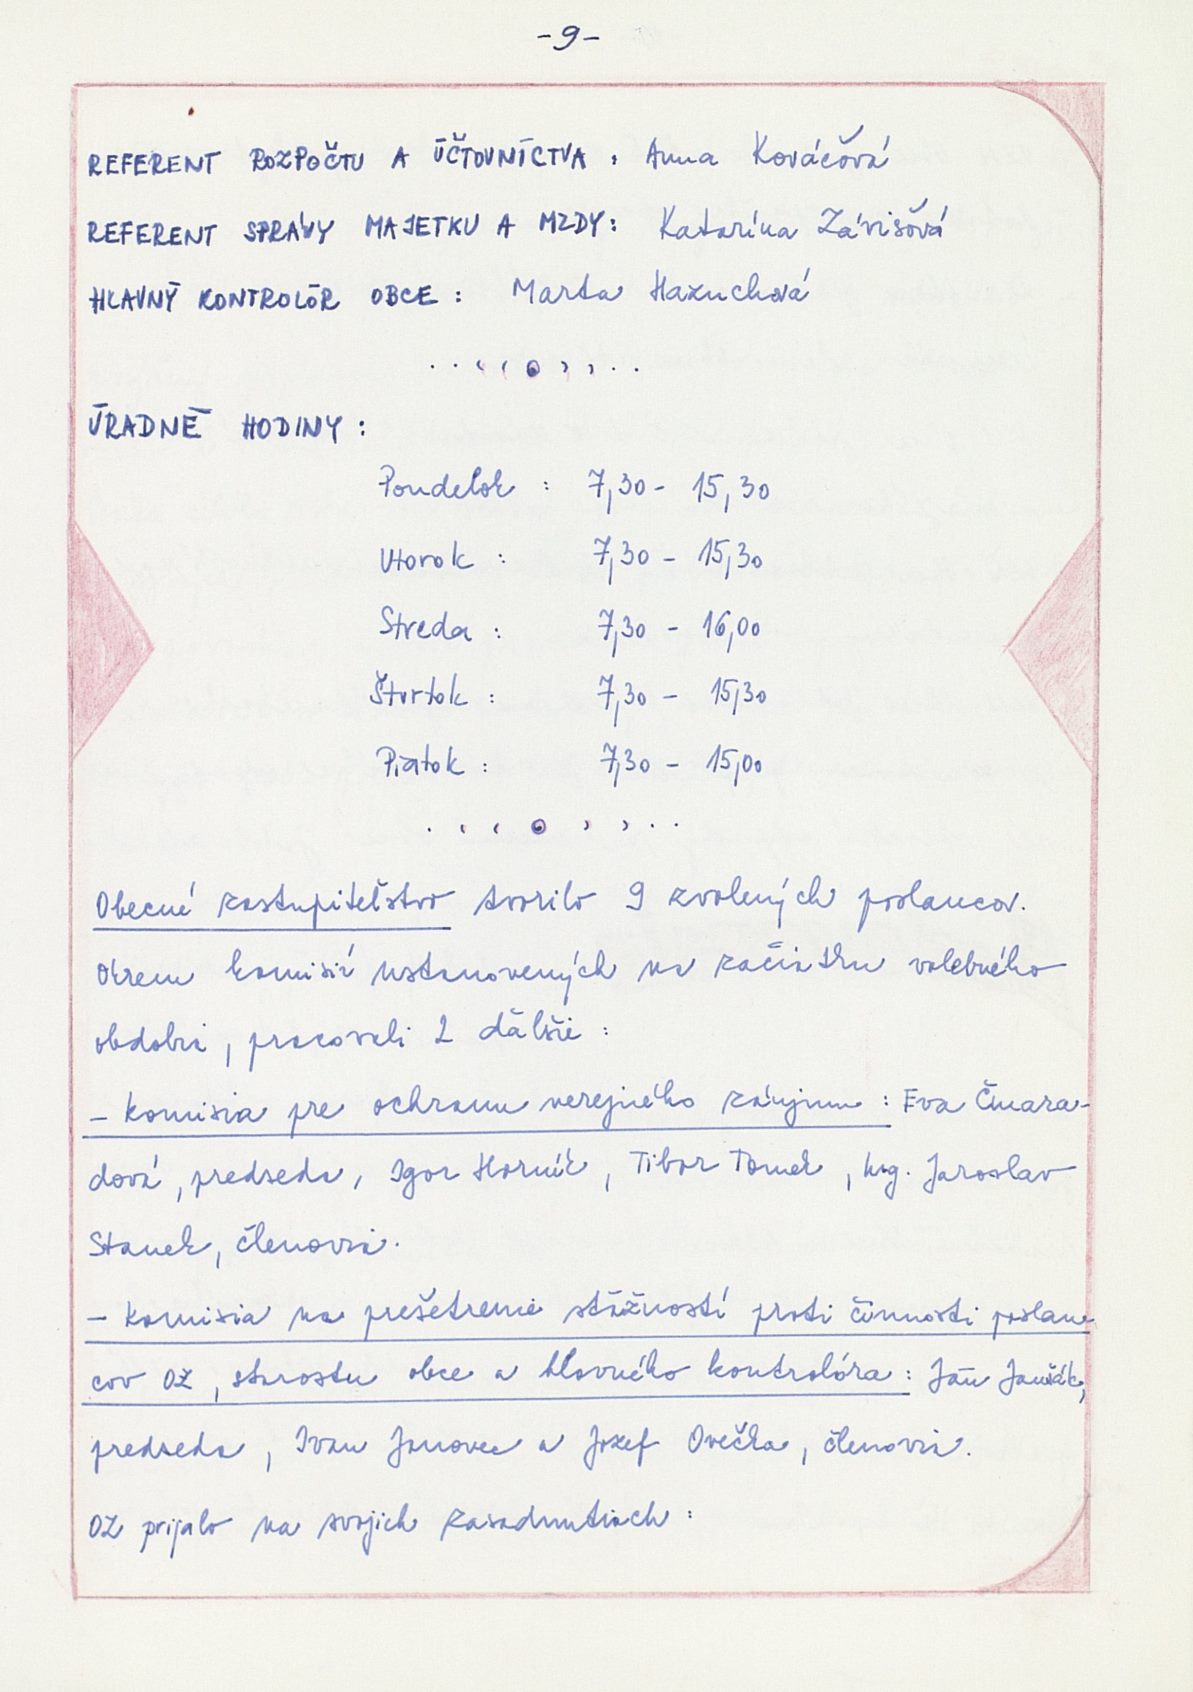 -9-
REFERENT ROZPOČTU A ÚČTOVNÍCTVA : Anna Kováčová
REFERENT SPRÁVY MAJETKU A MZDY: Katarína Závišová
HLAVNÝ KONTROLÓR OBCE : Marta Hazuchová
ÚRADNÉ HODINY :
Pondelok : 7,30 - 15,30
Utorok : 7,30 - 15,30
Streda : 7,30 - 16,00
Štvrtok : 7,30 - 15,30
Piatok : 7,30 - 15,00
Obecné zastupiteľstvo tvorilo 9 zvolených poslancov.
Okrem komisií ustanovených na začiatku volebného
obdobia, pracovali 2 ďalšie :
- komisia pre ochranu verejného záujmu : Eva Čmara-
dová, predseda, Igor Horník, Tibor Tomek, Ing. Jaroslav
Stanek, členovia.
- komisia na prešetrenie sťažností proti činnosti poslan
cov OZ, starostu obce a hlavného kontrolóra : Ján
predseda, Ivan Janovec a Jozef Ovečka, členovia.
OZ prijalo na svojich zasadnutiach :